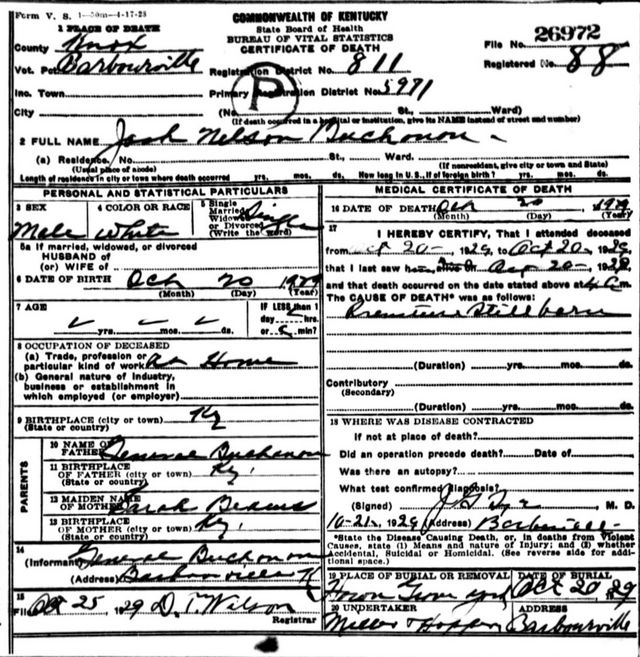 Form V. S. 1-50m-4-17-28
COMMONWEALTH OF KENTUCKY
State Board of Health
BUREAU OF VITAL STATISTICS
CERTIFICATE OF DEATH
1 PLACE OF DEATH
County Knox
File No. 26972
Vot. Pct. Barbourville
Registration District No. 811
Registered No. 88
Inc. Town
Primary Registration District No. 5971
P
City (No. St., Ward)
(If death occurred in a hospital or institution, give its NAME instead of street and number)
2 FULL NAME Nelson Buchonon
(a) Residence. No. St., Ward.
(Usual place of abode) (If nonresident, give city or town and State)
Length of residence in city or town where death occurred yrs. mos. ds. How long in U.S., if of foreign birth? yrs. mos. ds.
PERSONAL AND STATISTICAL PARTICULARS
3 SEX Male
4 COLOR OR RACE White
5 Single Married Widowed or Divorced (Write the word) Single
5a If married, widowed, or divorced
HUSBAND of
(or) WIFE of
6 DATE OF BIRTH Oct 20 1929
(Month) (Day) (Year)
7 AGE
yrs. mos. ds.
IF LESS than 1 day hrs. or min?
8 OCCUPATION OF DECEASED
(a) Trade, profession or particular kind of work at Home
(b) General nature of industry, business or establishment in which employed (or employer)
9 BIRTHPLACE (city or town) Ky
(State or country)
PARENTS
10 NAME OF FATHER General Buchanon
11 BIRTHPLACE OF FATHER (city or town) Ky.
(State or country)
12 MAIDEN NAME OF MOTHER Sarah Beams
13 BIRTHPLACE OF MOTHER (city or town) Ky.
(State or country)
14 (Informant) General Buchonon
(Address) Barbourville Ky
15 Filed Oct 25 1929 D. T. Wilson
Registrar
MEDICAL CERTIFICATE OF DEATH
16 DATE OF DEATH Oct 20 1929
(Month) (Day) (Year)
17 I HEREBY CERTIFY, That I attended deceased
from Oct 20-, 1929, to Oct 20-, 1929,
that I last saw alive on 20-
and that death occurred on the date stated above at 4 a m.
The CAUSE OF DEATH* was as follows:
Premature Stillborn
(Duration) yrs. mos. ds.
Contributory
(Secondary)
(Duration) yrs. mos. ds.
18 WHERE WAS DISEASE CONTRACTED
If not at place of death?
Did an operation precede death? Date of
Was there an autopsy?
What test confirmed diagnosis?
(Signed) M. D.
10-21-, 1929 (Address) Barbourville
*State the Disease Causing Death, or, in deaths from Violent Causes, state (1) Means and nature of Injury; and (2) whether Accidental, Suicidal or Homicidal. (See reverse side for additional space.)
19 PLACE OF BURIAL OR REMOVAL
DATE OF BURIAL
Oct 20 1929
20 UNDERTAKER
ADDRESS
Hopper Barbourville